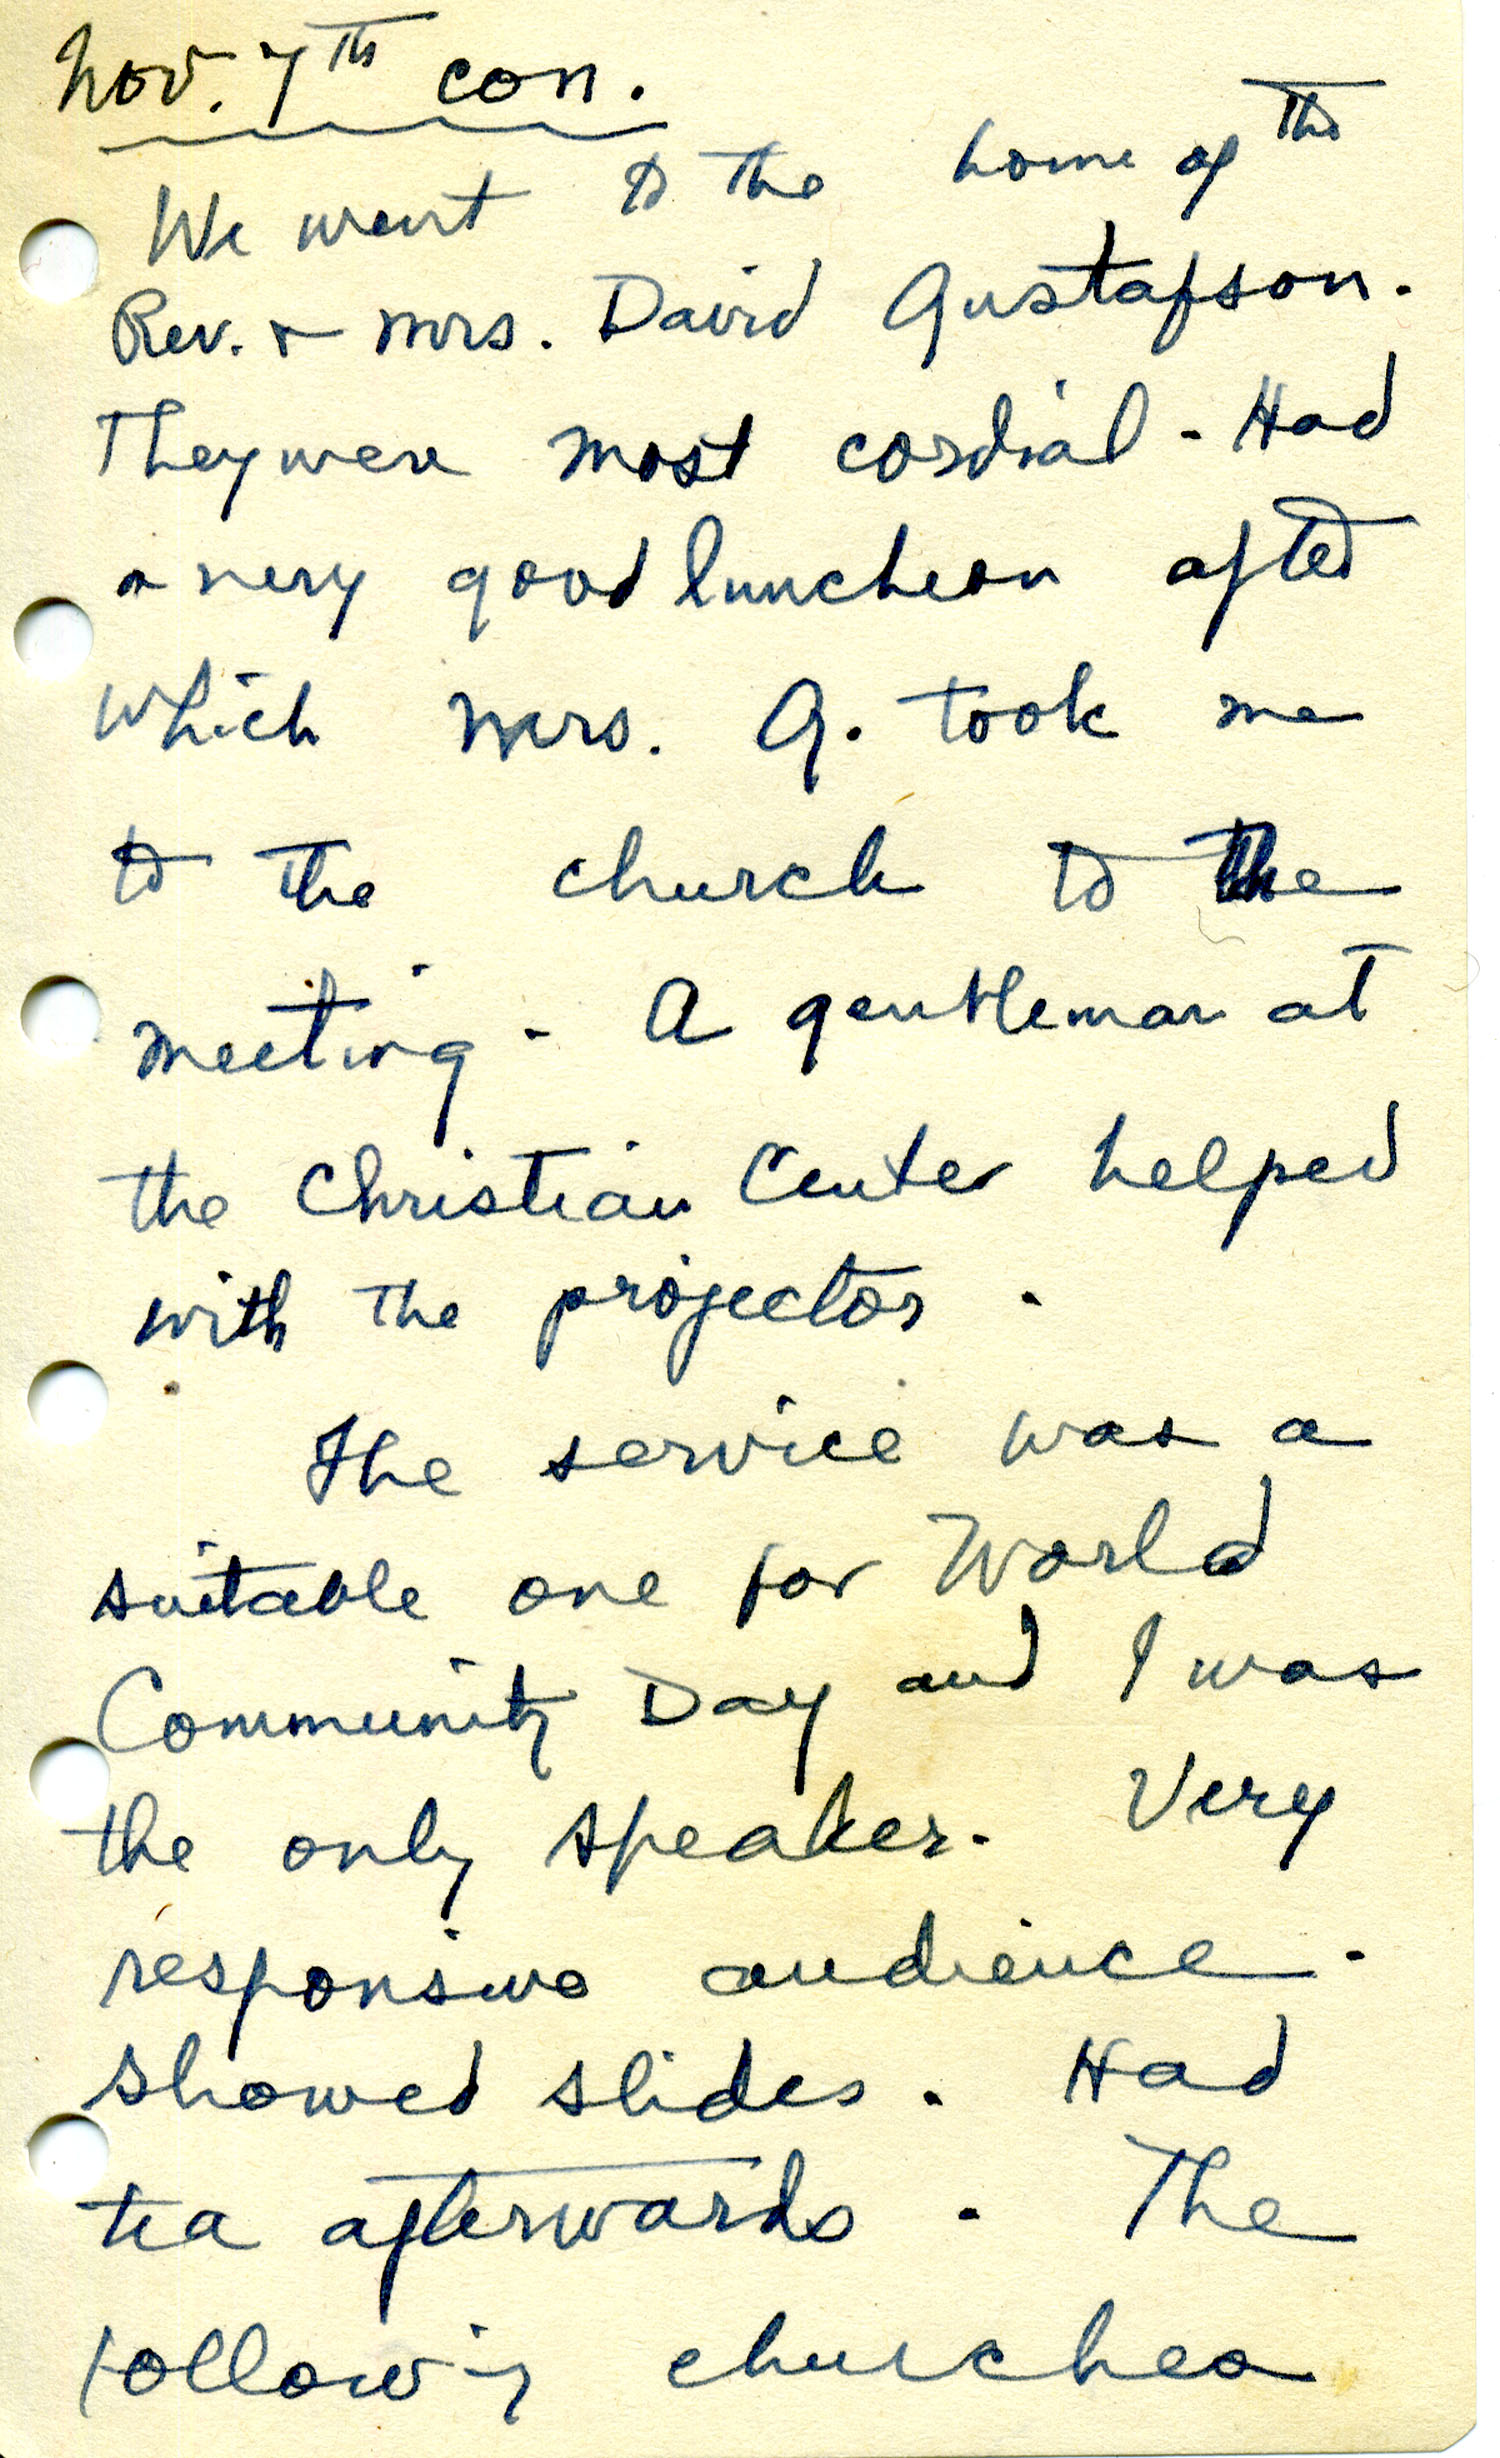 Nov. 7th con.
We went to the home of the
Rev. & Mrs. David Gustafson.
They were most cordial - Had
a very good luncheon after
which Mrs. G. took me
to the church to the
meeting - A gentleman at
the Christian Center helped
with the projector.
The service was a
suitable one for World
Community Day and I was
the only speaker. Very
responsive audience.
Showed slides. Had
tea afterwards. The
following churches